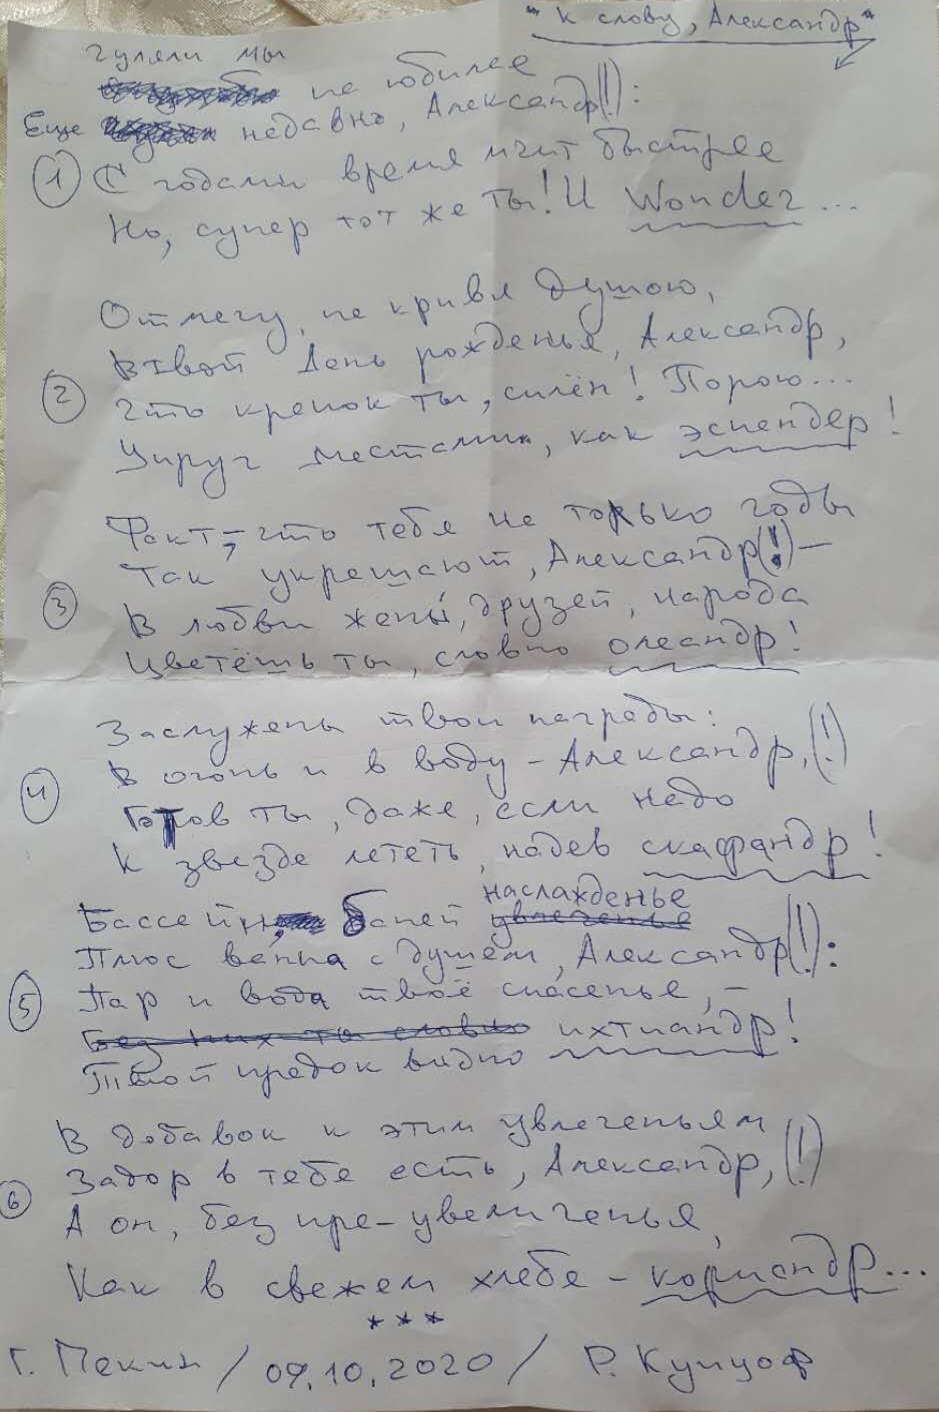 "К слову, Александр"
гуляли мы
на юбилее
Еще недавно, Александр(!):
1 С годами время мчит быстрее
Но, супер тот же ты! И Wonder...
Отмечу, не кривя душою,
В твой День рожденья, Александр,
2 Что крепок ты, силён! Порою...
Упруг местами, как эспендер!
Факт, – что тебя не только годы
Так украшают, Александр(!) –
3 В любви жены, друзей, народа
Цветёшь ты, словно олеандр!
Заслужены твои награды:
В огонь и в воду – Александр, (!)
4 Готов ты, даже, если надо
К звезде лететь, надев скафандр!
наслажденье
Бассейн, баней увлеченье
Плюс ванна с душем, Александр(!):
5 Пар и вода твоё спасенье, –
Без них ты словно ихтиандр!
Твой предок видно
В добавок к этим увлеченьям
Задор в тебе есть, Александр, (!)
6 А он, без пре-увеличенья,
Как в свежем хлебе – кориандр...
***
г. Пекин / 09.10.2020 / Р. Купцов